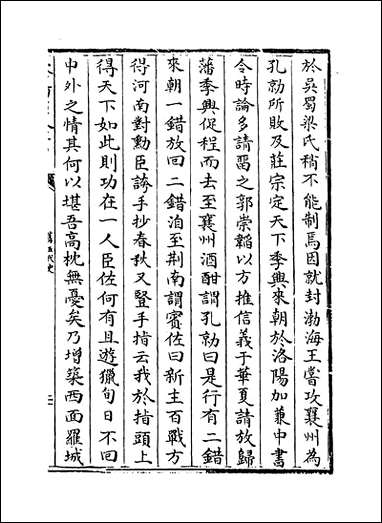 於吳蜀梁氏稍不能制焉因就封渤海王嘗攻襄州為
孔勍所敗及莊宗定天下季興來朝於洛陽加兼中書
令時論多請留之郭崇韜以方推信義于華夏請放歸
藩季興促程而去至襄州酒酣謂孔勍曰是行有二錯
來朝一錯放回二錯洎至荆南謂賓佐曰新主百戰方
得河南對勲臣誇手抄春秋又豎手指云我於指頭上
得天下如此則功在一人臣佐何有且遊獵旬日不回
中外之情其何以堪吾高枕無憂矣乃增築西面羅城
舊五代史